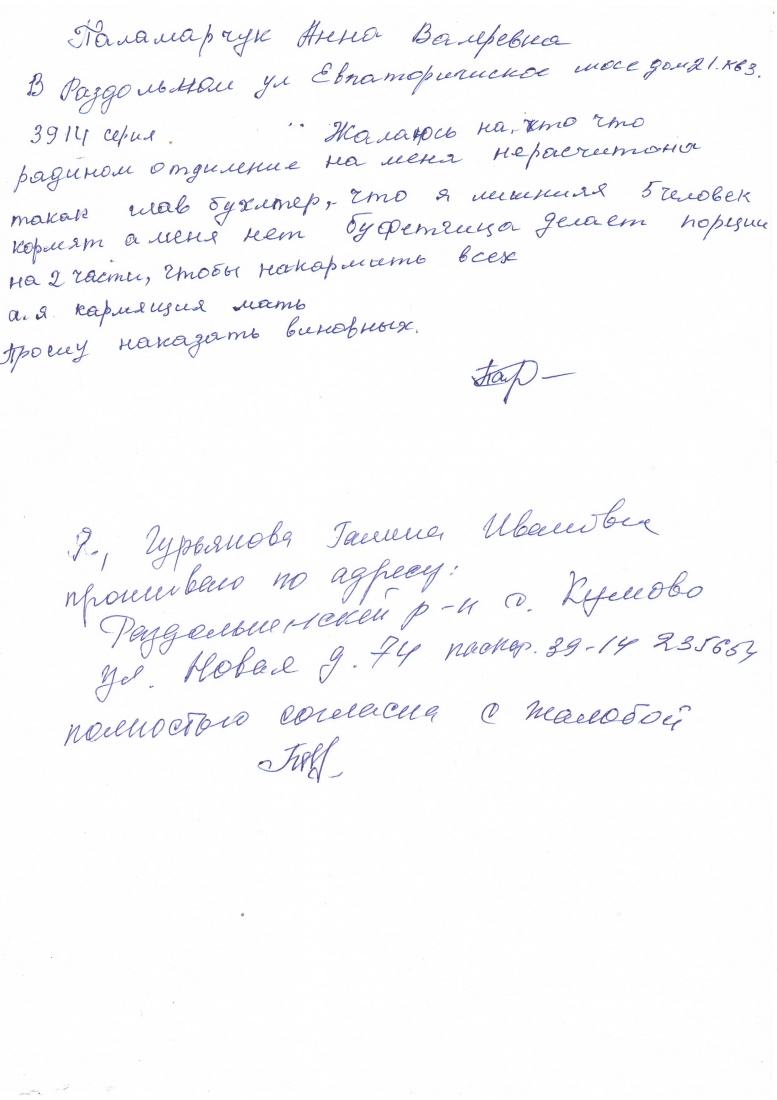 Паламарчук Анна Валеревна
В Раздольном ул Евпаторичиское шосе дом 21. кв 3.
3914 серия. Жалаюсь на, кто что
радином отдиление на меня нерасчитона
такак глав бухлтер, что я лишниля 5 человек
кормят а меня нет буфетчица делает порции
на 2 части, чтобы накармить всех
а.я. кармящия мать
Прошу наказать виновных.
Я., Гурьянова Галина Ивановна
проживаю по адресу:
Раздольненский р-н с. Кумово
ул. Новая д. 74 паспор. 39-14 235654
полностью согласна с жалобой